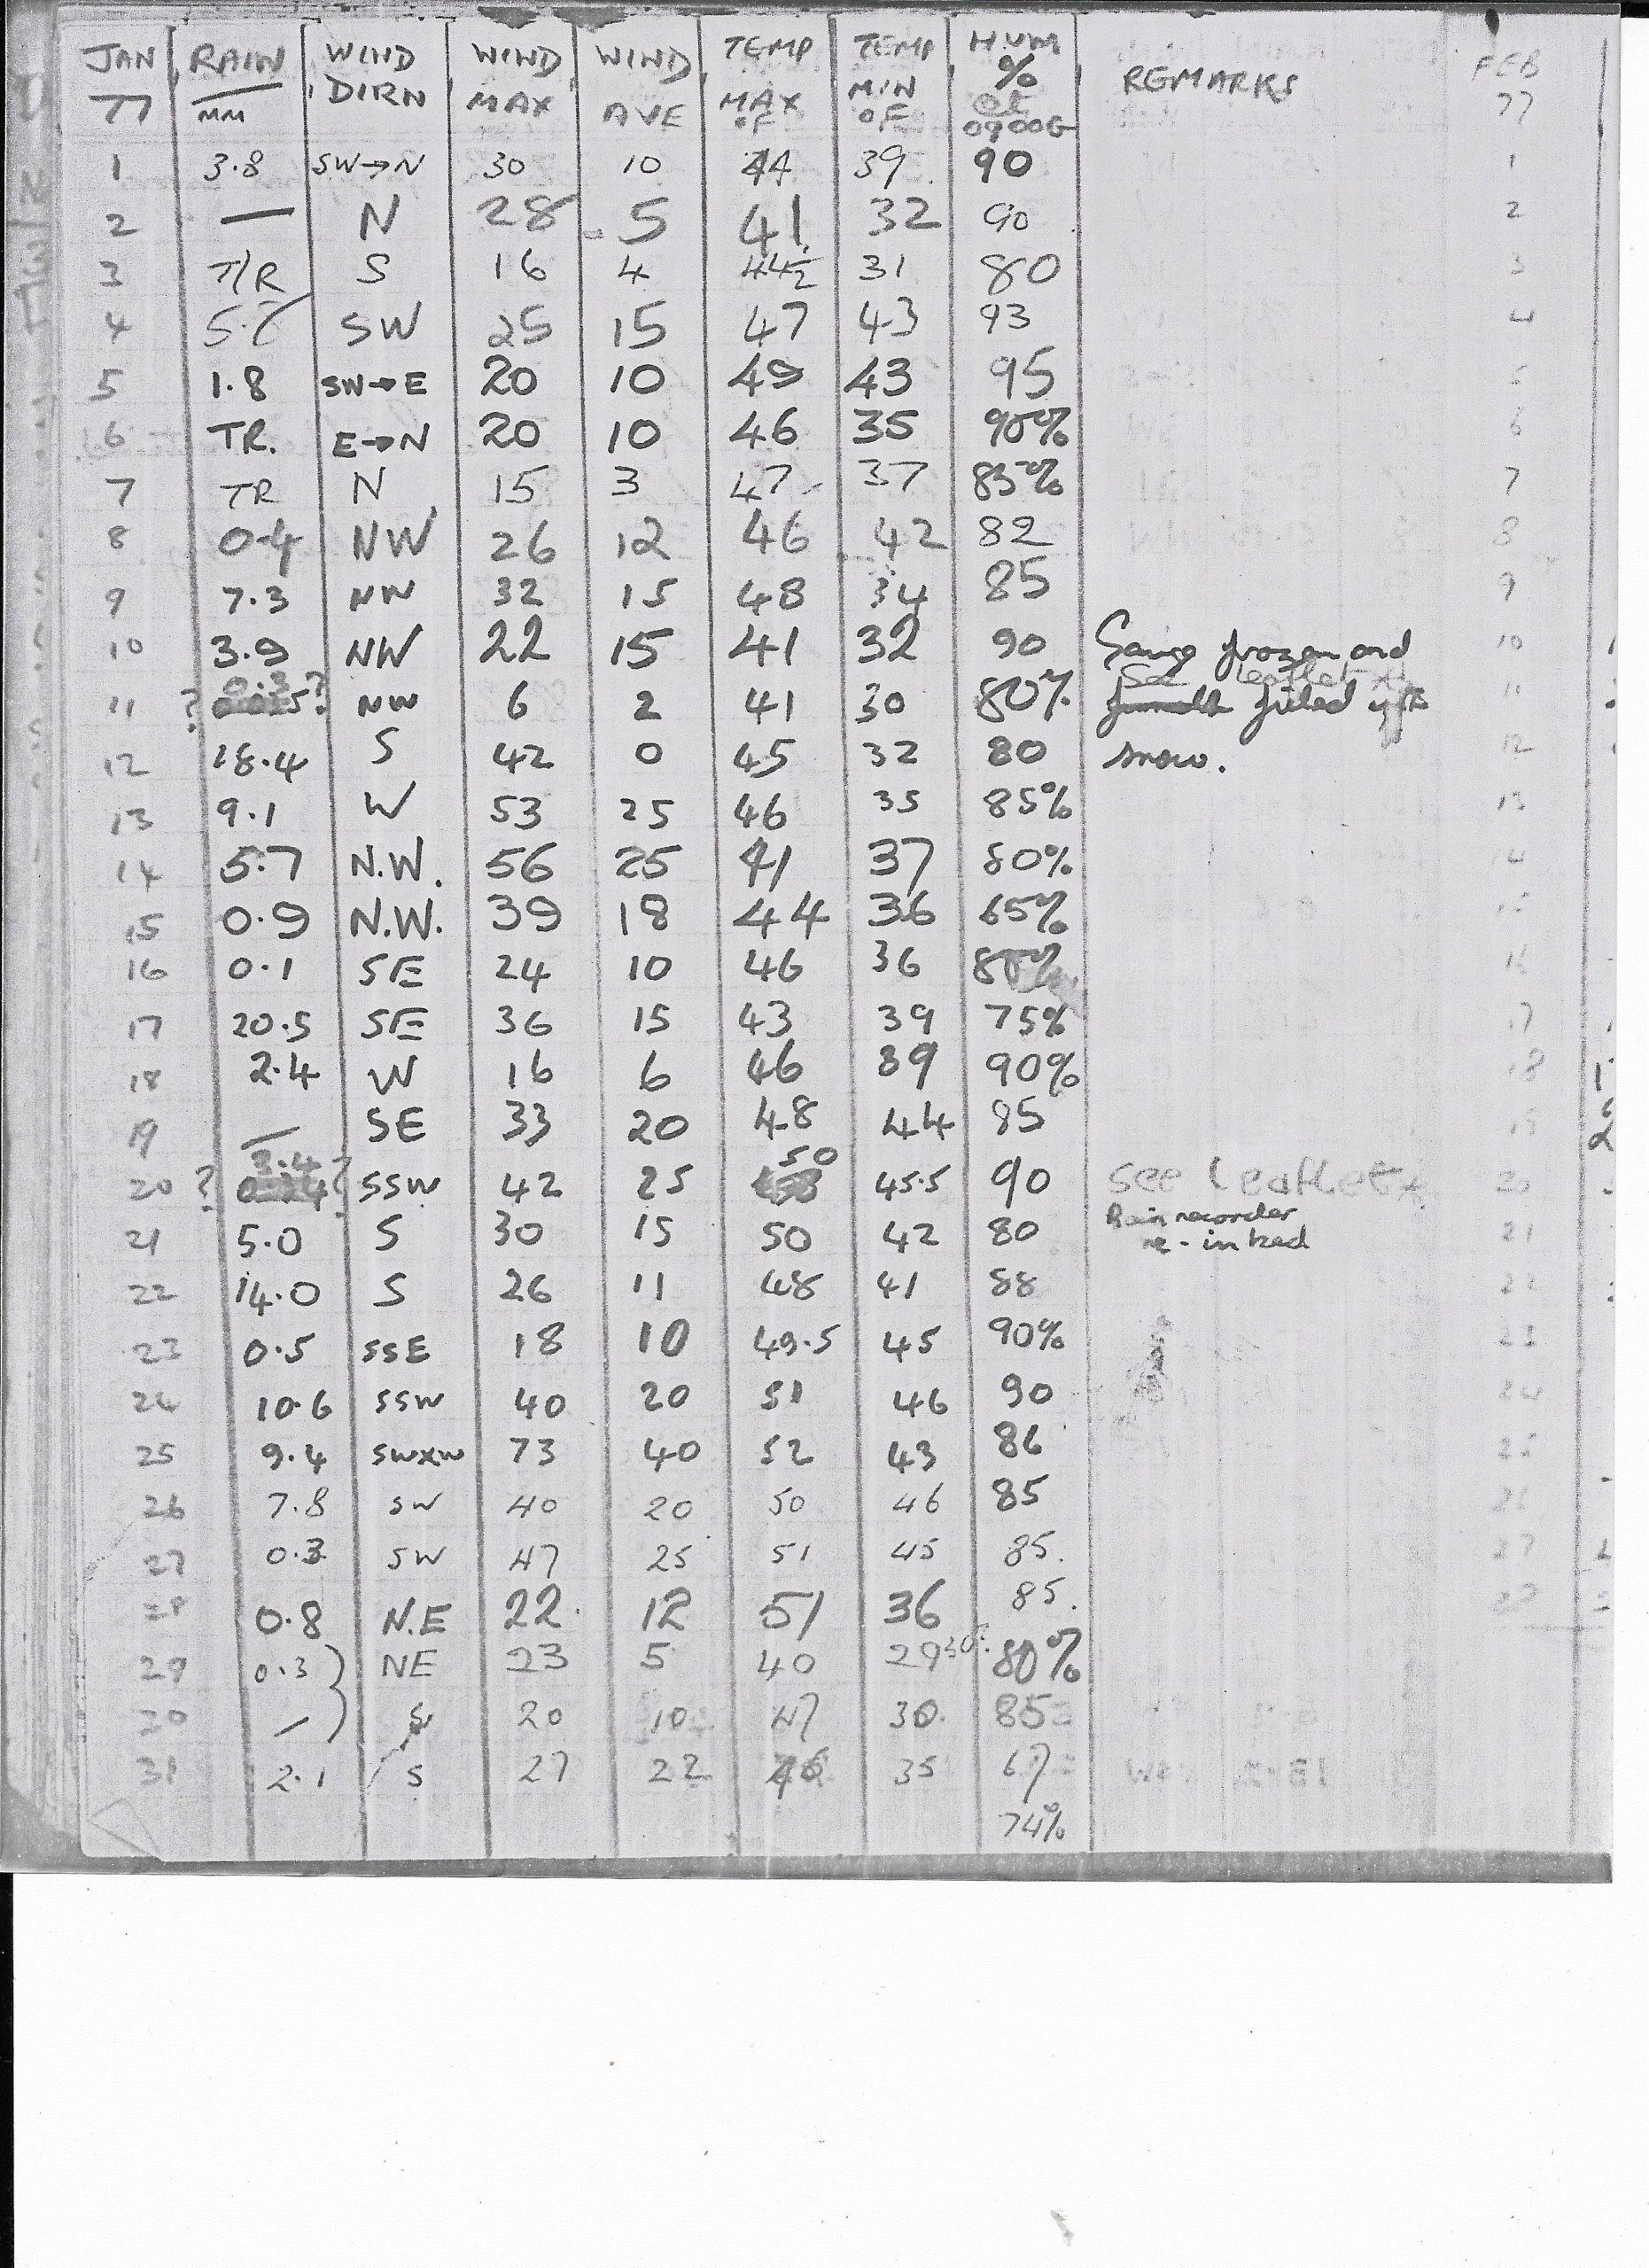 JAN 77 RAIN MM WIND DIRN WIND MAX WIND AVE TEMP MAX °F TEMP MIN °F HUM % at 0900G REMARKS FEB 77
1 3.8 SW→N 30 10 44 39 90 1
2 — N 28 5 41 32 90 2
3 T/R S 16 4 44½ 31 80 3
4 SW 25 15 47 43 93 4
5 1.8 SW→E 20 10 49 43 95 5
6 TR. E→N 20 10 46 35 90% 6
7 TR N 15 3 47 37 85% 7
8 0.4 NW 26 12 46 42 82 8
9 7.3 NW 32 15 48 34 85 9
10 3.9 NW 22 15 41 32 90 Gauge frozen and 10
See leaflet
11 ? 0.3 ? NW 6 2 41 30 80% filled with 11
12 18.4 S 42 0 45 32 80 snow. 12
13 9.1 W 53 25 46 35 85% 13
14 5.7 N.W. 56 25 41 37 80% 14
15 0.9 N.W. 39 18 44 36 65% 15
16 0.1 SE 24 10 46 36 16
17 20.5 SE 36 15 43 39 75% 17
18 2.4 W 16 6 46 39 90% 18
19 — SE 33 20 48 44 85 19
20 ? 3.4 ? SSW 42 25 50 45.5 90 See leaflet 20
21 5.0 S 30 15 50 42 80 Rain recorder re-inked 21
22 14.0 S 26 11 48 41 88 22
23 0.5 SSE 18 10 49.5 45 90% 23
24 10.6 SSW 40 20 51 46 90 24
25 9.4 SWxW 73 40 52 43 86 25
26 7.8 SW 40 20 50 46 85 26
27 0.3 SW 47 25 51 45 85. 27
28 0.8 N.E 22 12 51 36 85. 28
29 0.3 NE 23 5 40 29 30? 80%
30 — S 20 10 47 30 85
31 2.1 S 27 22 46 35 67
74%